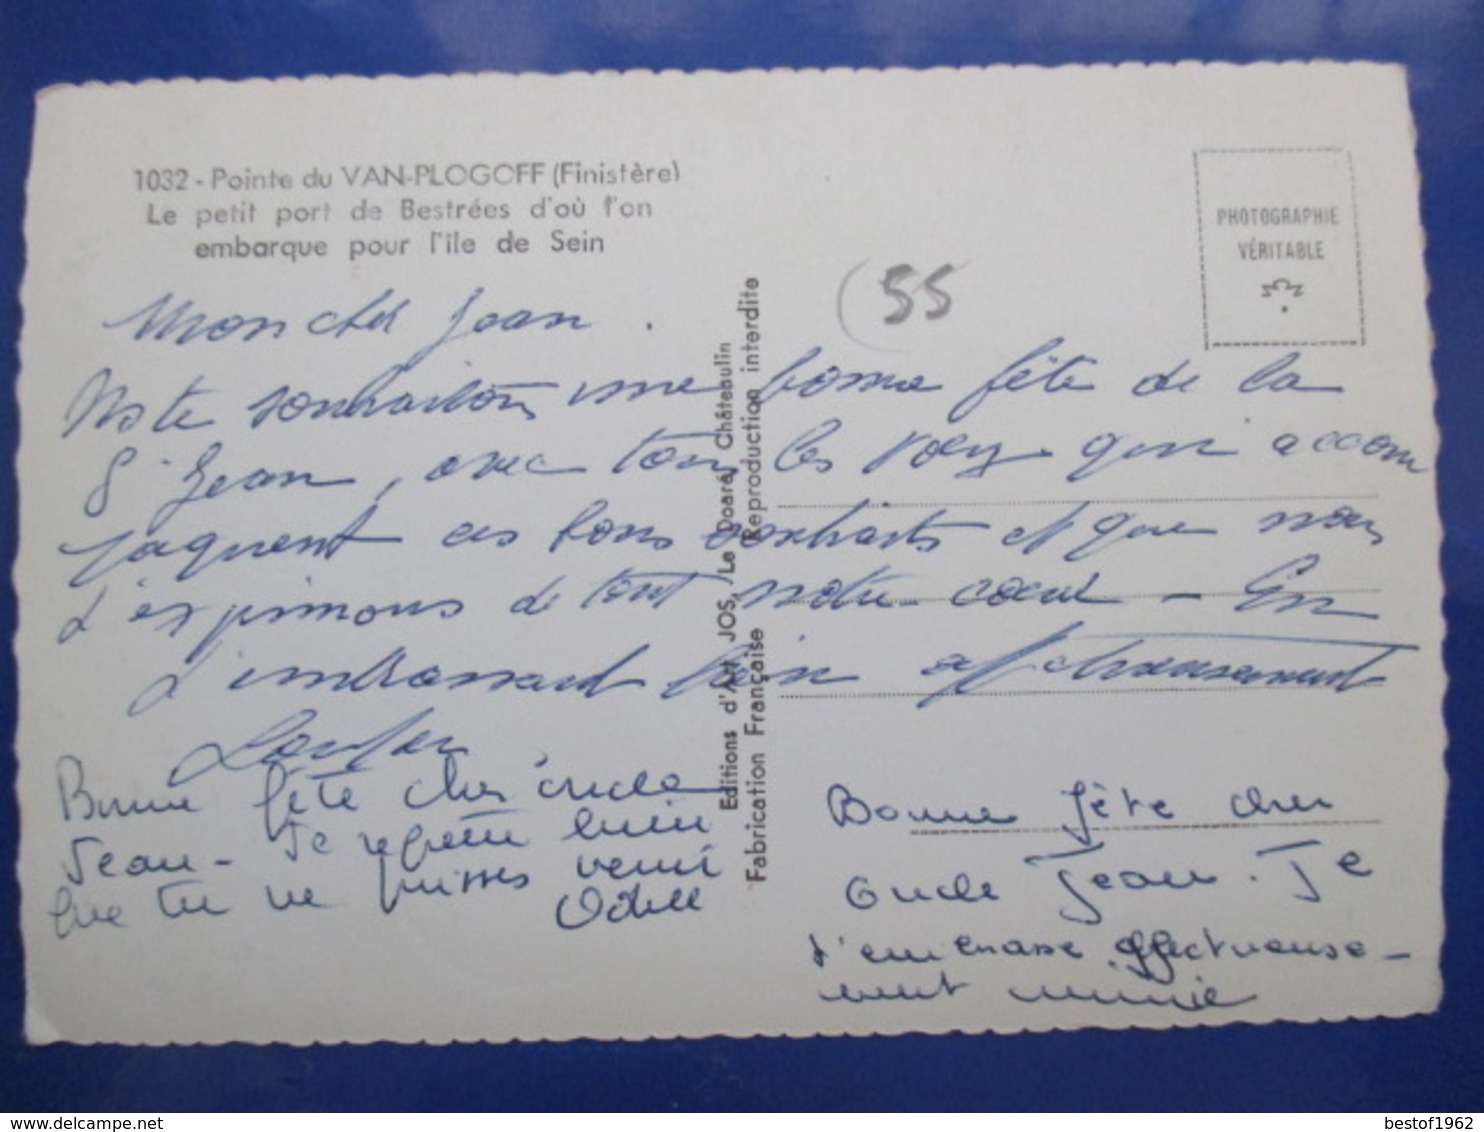 1032 - Pointe du VAN-PLOGOFF (Finistère)
Le petit port de Bestrées d'où l'on
embarque pour l'île de Sein
PHOTOGRAPHIE
VÉRITABLE
55
Mon cher Jean.
souhaitons une bonne fête de la
St Jean, avec tous les qui accom
pagnent ces bons souhaits et que nous
t'exprimons de tout notre coeur - En
t'embrassant bien affectueusement
Bonne fête cher oncle
Jean - Je regrette bien
que tu ne puisses venir
Odile
Bonne fête cher
Oncle Jean. Je
t'embrasse affectueuse-
ment
Editions d'Art JOS, Le Doaré, Châteaulin
Fabrication Française Reproduction interdite
www.delcampe.net
bestof1962